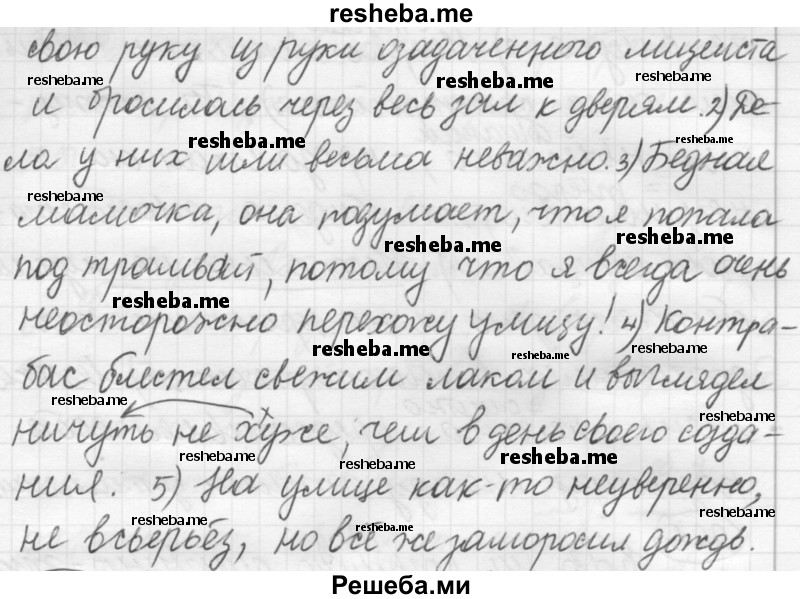 resheba.me
свою руку из руки озадаченного лицеиста
resheba.me resheba.me resheba.me
и бросилась через весь зал к дверям. 2) Де-
resheba.me resheba.me
ла у них шли весьма неважно. 3) Бедная
resheba.me
мамочка, она подумает, что я попала
resheba.me resheba.me
под трамвай, потому что я всегда очень
resheba.me
неосторожно перехожу улицу! 4) Контра-
resheba.me resheba.me resheba.me
бас блестел свежим лаком и выглядел
resheba.me resheba.me
ничуть не хуже, чем в день своего созда-
resheba.me resheba.me resheba.me
ния. 5) На улице как-то неуверенно,
resheba.me resheba.me resheba.me
не всерьёз, но всё же заморосил дождь.
Решеба.ми